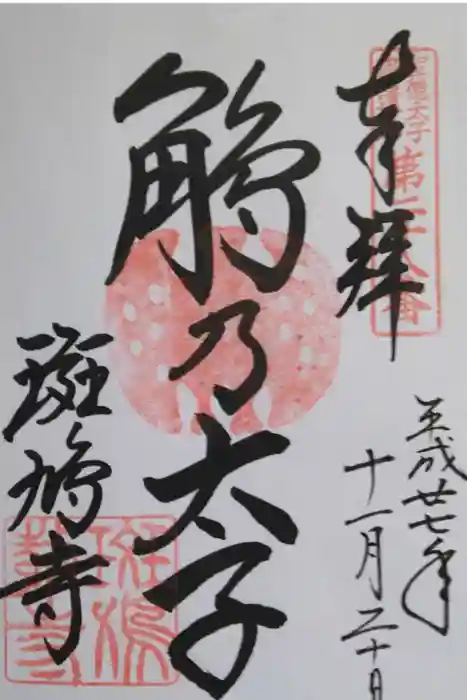 奉拝
聖徳太子
第二十八番
平成廿七年
十一月二十日
鵤乃太子
斑鳩寺
斑鳩